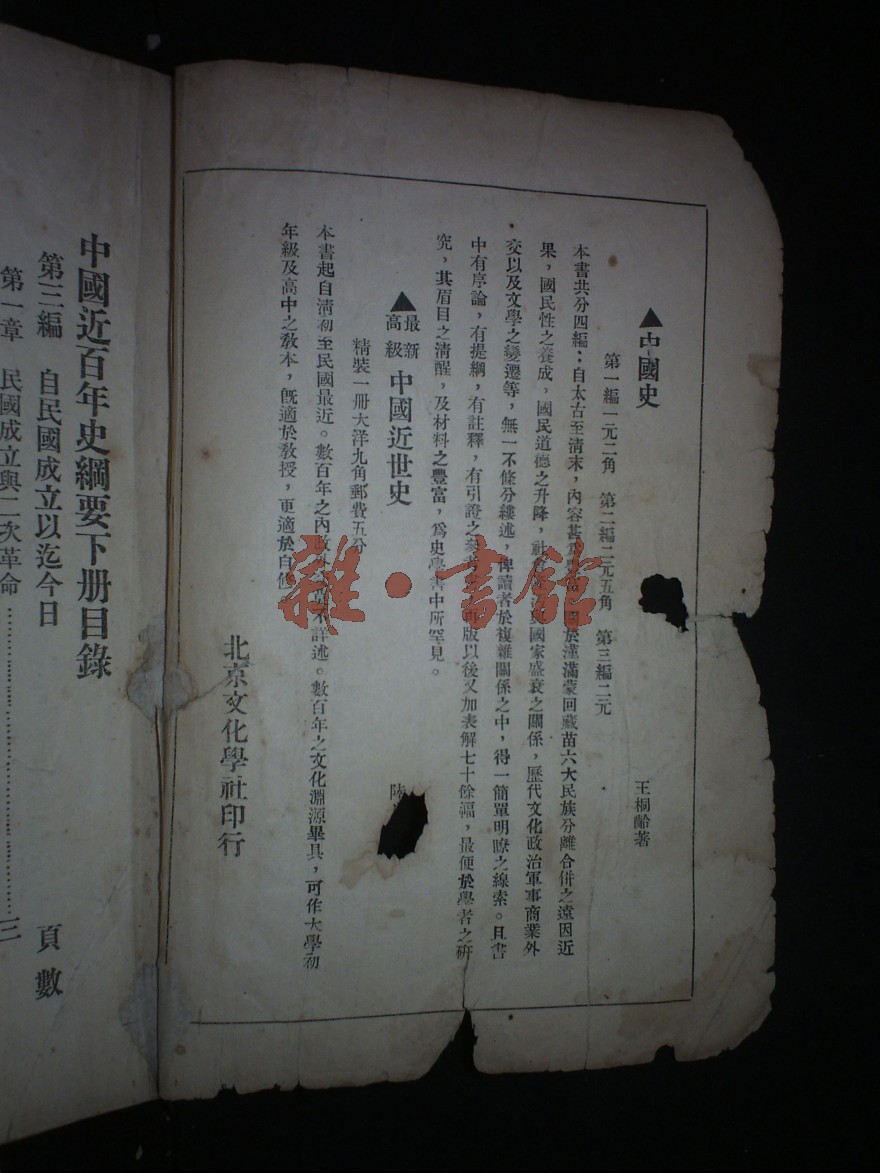 ▲中國史
王桐齡著
第一編一元二角 第二編二元五角 第三編二元
本書共分四編：自太古至清末，內容甚為豐富，關於漢滿蒙回藏苗六大民族分離合併之遠因近
果，國民性之養成，國民道德之升降，社會 國家盛衰之關係，歷代文化政治軍事商業外
交以及文學之變遷等，無一不條分縷述，俾讀者於複雜關係之中，得一簡單明瞭之線索。且書
中有序論，有提綱，有註釋，有引證之 再版以後又加表解七十餘幅，最便於學者之研
究，其眉目之清醒，及材料之豐富，為史學書中所罕見。
▲最新高級中國近世史
陸
精裝一冊大洋九角郵費五分
本書起自清初至民國最近。數百年之內政外 不詳述。數百年之文化淵源畢具，可作大學初
年級及高中之教本，既適於教授，更適於自修。
北京文化學社印行
中國近百年史綱要下册目錄
頁數
第三編 自民國成立以迄今日
第一章 民國成立與二次革命……………三
雜·書館